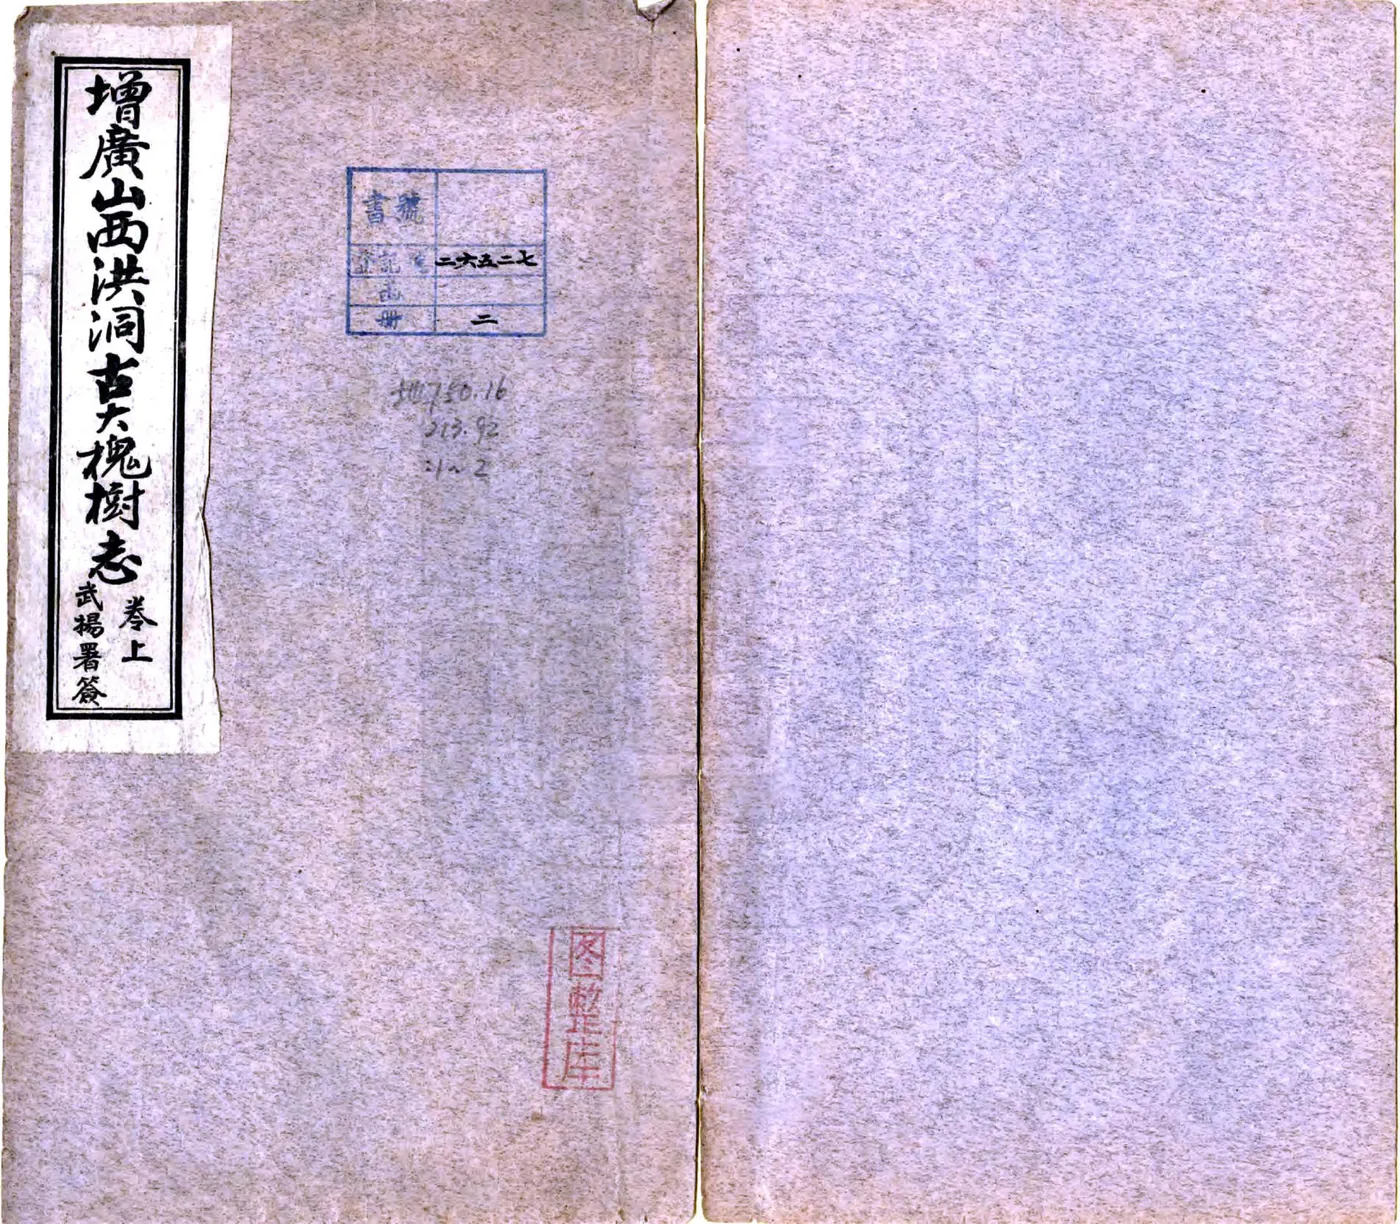 增廣山西洪洞古大槐樹志
卷上
武揚署簽
書號
登記 二六五二七
函
册 二
地750.16
213.92
:1~2
图整库